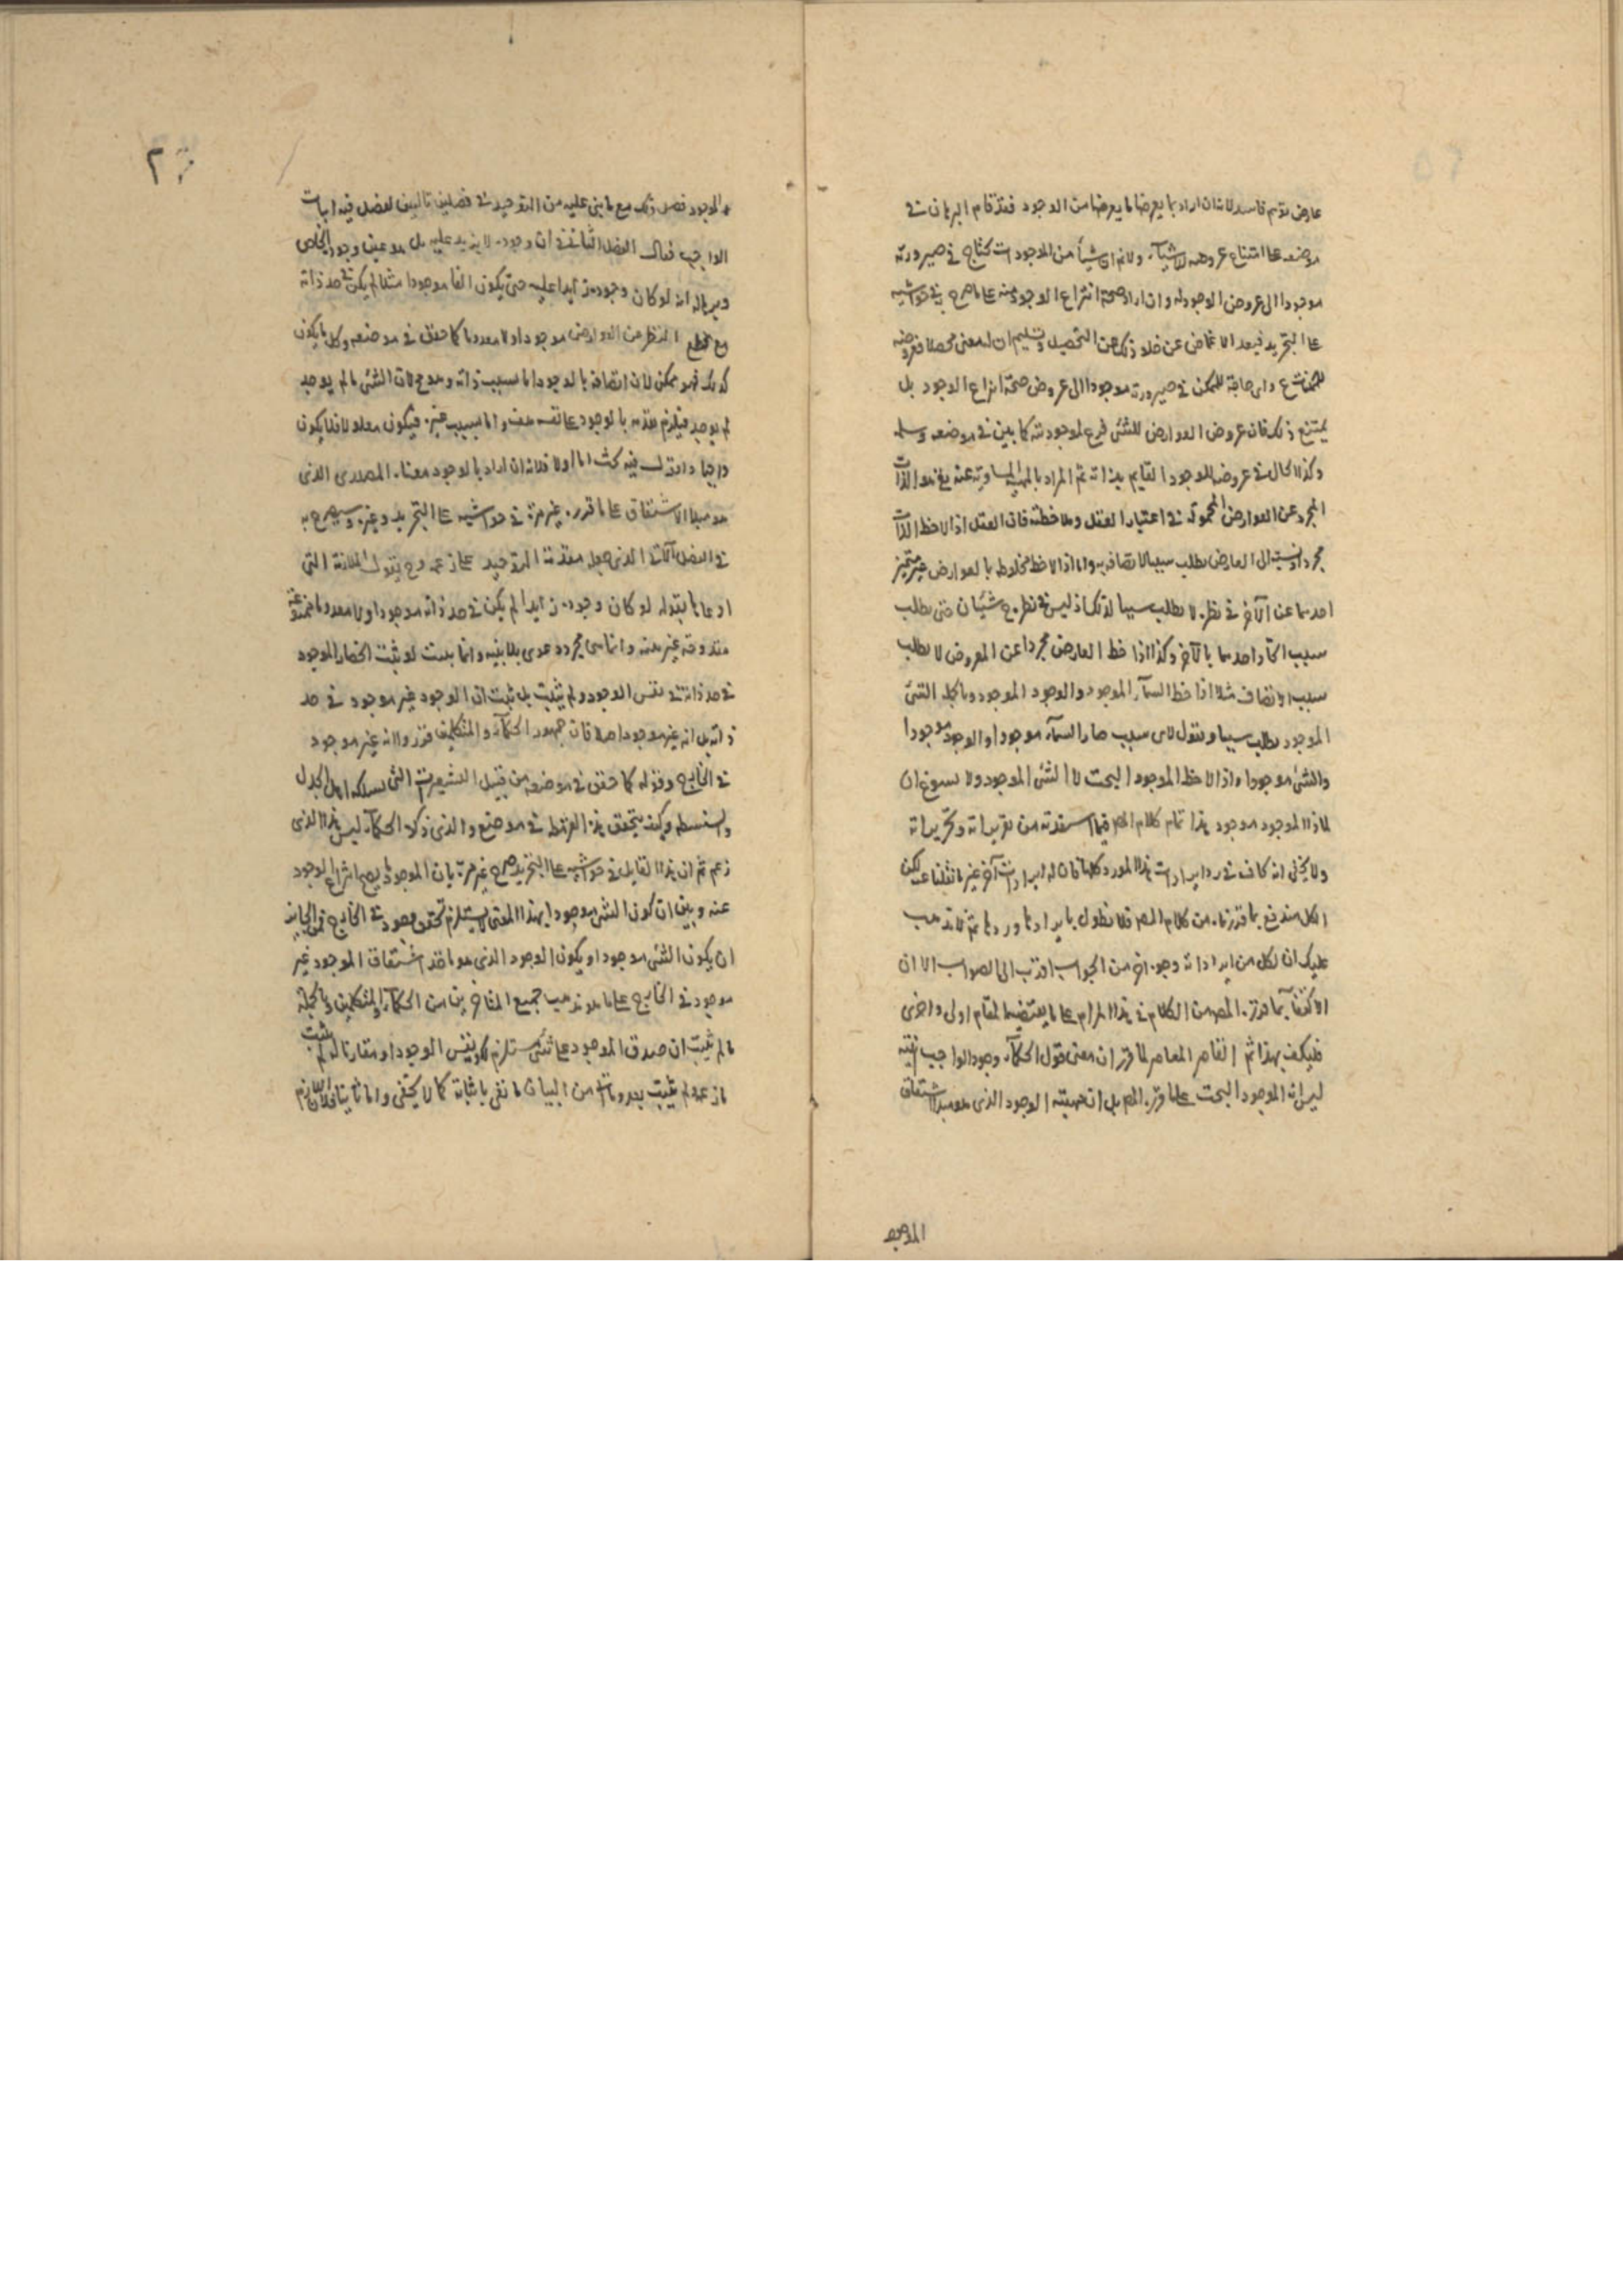 عارض توهم فاسد لانه ان اراد بما يعرضها ما يعرضها من الوجود فقد قام البرهان في
موضعه على امتناع عروضه للاشياء ولانم ان شيأ من الموجودات يحتاج في صيرورته
موجودا الى عروض الوجود له وان اراد صحة انتزاع الوجود عنه على ما صرح به في حواشيه
على التجريد فبعد الاغماض عن خلو ذلك عن التحصيل وتسليم ان له معنى محصلا فعروضه
للممكن ع واى حاجة للممكن في صيرورته موجودا الى عروض صحة انتزاع الوجود بل
يمتنع ذلك فان عروض العوارض للشئ فرع لموجوديته كما بين في موضعه وسلمه
وكذا الحال في عروضه للوجود القايم بذاته ثم المراد بالمهية المساوية عنه يخ هو الذات
المجرد عن العوارض المحمولة في اعتبار العقل وملاحظته فان العقل اذا لاحظ الذات
مجردا ونسبت الى العارض يطلب سببا لاتصافه به واما اذا لاحظ مخلوطه بالعوارض غير متميز
احدهما عن الآخر في نظره لا يطلب سببا لذلك اذ ليس في نظره ح شيئان حتى يطلب
سبب اتحاد احدهما بالآخر وكذا اذا خط العارض مجردا عن المعروض لا يطلب
سبب الاتصاف مثلا اذا خط السمآء الموجود والوجود الموجود وبالجملة الشئ
الموجود يطلب سببا ويقول لاى سبب صار السمآء موجودا والوجود موجودا
والشئ موجودا واذا لاحظ الموجود البحت لا الشئ الموجود ولا يسوغ ان
لماذا الموجود موجود هذا تمام كلام المص فيما استفدته من تقريراته وتحريراته
ولا يخفى انه كاف في رد ايرادات هذا المورد كلها فان له ايرادات آخر غير ما نقلنا عنه لكن
الكل مندفع بما قررناه من كلام المص فلا نطول بايرادها وردها ثم لا يذهب
عليك ان لكل من ايراداته وجوه اخر من الجواب اقرب الى الصواب الا ان
الاكتفآء بما قرره المص من الكلام في هذا المرام على ما يقتضيه المقام اولى واحرى
فليكف بهذا ثم القاصر المعاصر لما قرر ان معنى قول الحكمآء وجود الواجب عينه
ليس انه الموجود البحت على ما قرره المص بل ان مهيته الوجود الذى هو مبدأ الاشتقاق
الموجود
الموجود فصل ذلك مع ما بنى عليه من التوحيد في فصلين تاليين لفصل فيه اثبات
الواجب فقال الفصل الثانى في ان وجوده لا يزيد عليه بل هو عين وجود الخاص
وبرهانه انه لو كان وجوده زايدا عليه حتى يكون الفا موجودا مثلا لم يكن في حد ذاته
مع قطع النظر عن العوارض موجودا ولا معدوما كما حقق في موضعه وكل ما يكون
كذلك فهو ممكن لان اتصافه بالوجود اما بسبب ذاته وهو مح لان الشئ ما لم يوجد
لم يوجد فيلزم تقدمه بالوجود على نفسه هف واما بسبب غيره فيكون معلولا فلا يكون
واجبا واقول فيه بحث اما اولا فلانه ان اراد بالوجود معناه المصدرى الذى
هو مبدأ الاشتقاق على ما قرره غير مرة في حواشيه على التجريد وغيره وسيصرح به
في الفصل الثالث الذى جعله مقدمة التوحيد على زعمه وح يقول الملازمة التى
ادعاها بقوله لو كان وجوده زايدا لم يكن في حد ذاته موجودا ولا معدوما ممنوعة
مقدوحة غير بينة وانما هى مجرد دعوى بلا بينة وانما يثبت لو ثبت انحصار الموجود
في حد ذاته في نفس الوجود ولم يثبت بل يثبت ان الوجود غير موجود في حد
ذاته بل انه غير موجود اصلا فان جمهور الحكمآء والمتكلمين قرروا انه غير موجود
في الخارج وقوله كما حقق في موضعه من قبيل التشعيرات التى يسلكه اهل الجدل
والسفسطه وكيف يتحقق هذه الغلط في موضع والذى ذكره الحكمآء ليس هذا الذى
زعم ثم ان هذا القايل في حواشيه على التجريد صرح غير مرة بان الموجود ما يصح انتزاع الوجود
عنه وبين ان كون الشئ موجودا بهذا المعنى لا يستلزم تحقق وجود في الخارج فمن الجايز
ان يكون الشئ موجودا ويكون الوجود الذى هو ماخذ اشتقاق الموجود غير
موجود في الخارج على ما هو مذهب جميع المتاخرين من الحكمآء والمتكلمين وبالجملة
ما لم يثبت ان صدق الموجود على شئ مستلزم لكونه نفس الوجود او مقارنا له لم يثبت
ما زعمه لم يثبت بعد وما اتى من البيان ما نفى باثباته كما لا يخفى واما ثانيا فلان اللازم